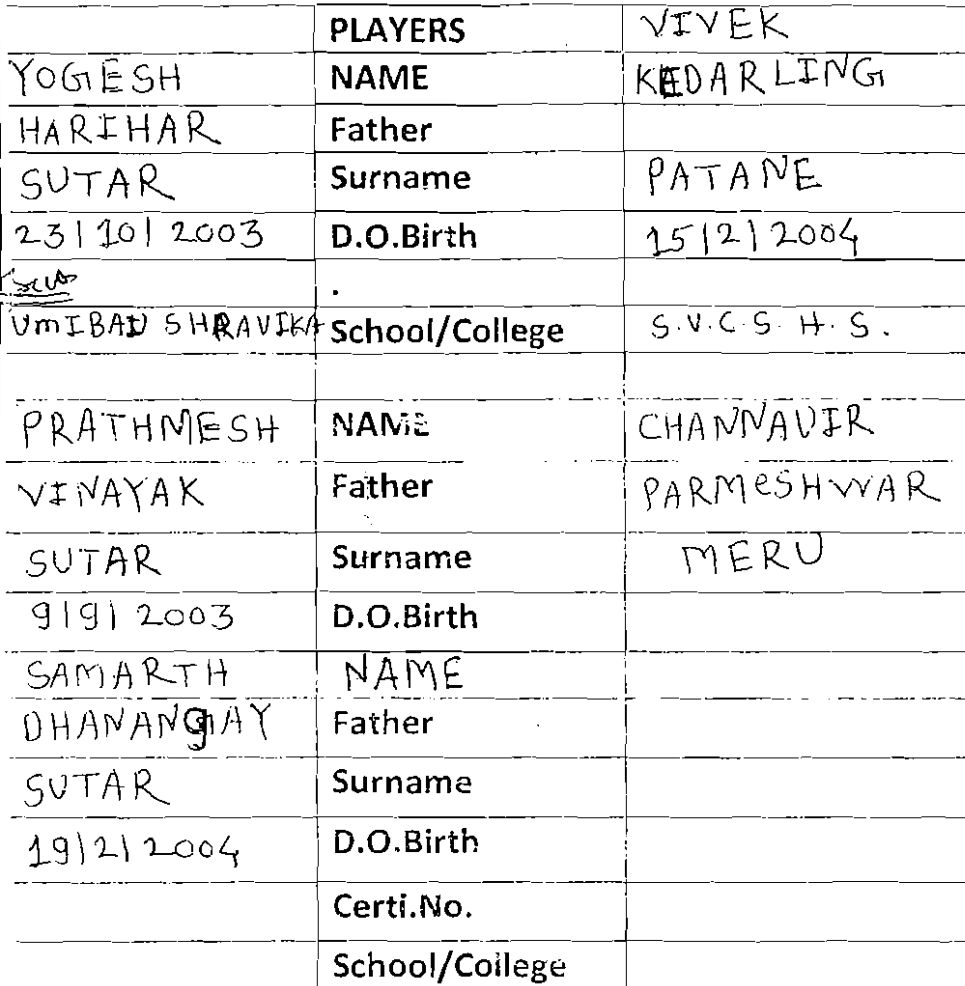 PLAYERS VIVEK
YOGESH NAME KEDARLING
HARIHAR Father
SUTAR Surname PATANE
23|10|2003 D.O.Birth 15|2|2004
.
UmIBAI SHRAVIKA School/College S.V.C.S. H.S.
PRATHMESH NAME CHANNAVIR
VINAYAK Father PARMeSHWAR
SUTAR Surname MERU
9|9|2003 D.O.Birth
SAMARTH NAME
DHANANGJAY Father
SUTAR Surname
19|2|2004 D.O.Birth
Certi.No.
School/College